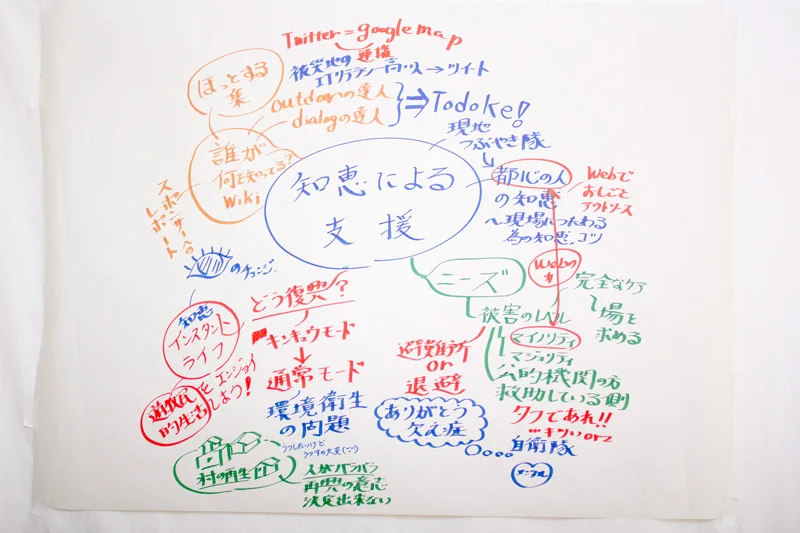 Twitter = google map
連携
被災地の
ITリテラシー高い人 → ツイート
ほっとする
集
outdoorの達人
dialogの達人
⇒ Todoke!
現地
つぶやき隊
誰が
何を知ってる?
Wiki
スポンサーへの
レポート
知恵による
支援
都心の人
の知恵
〜現場につたわる
為の知恵、コツ
Webで
おしごと
アウトソース
Webの
力
のチェンジ.
ニーズ
被害のレベル
完全なケア
場を
求める
マイノリティ
マジョリティ
公的機関の方
救助している側
避難所
or
退避
タフであれ!!
…キツい orz
自衛隊
ありがとう
欠乏症
どう復興?
キンキュウモード
↓
通常モード
環境衛生
の問題
知恵
インスタント
ライフ
遊牧民
的生活
をエンジョイ
しよう!
村の再生
人がバラバラ
再興の意志
決定出来ない